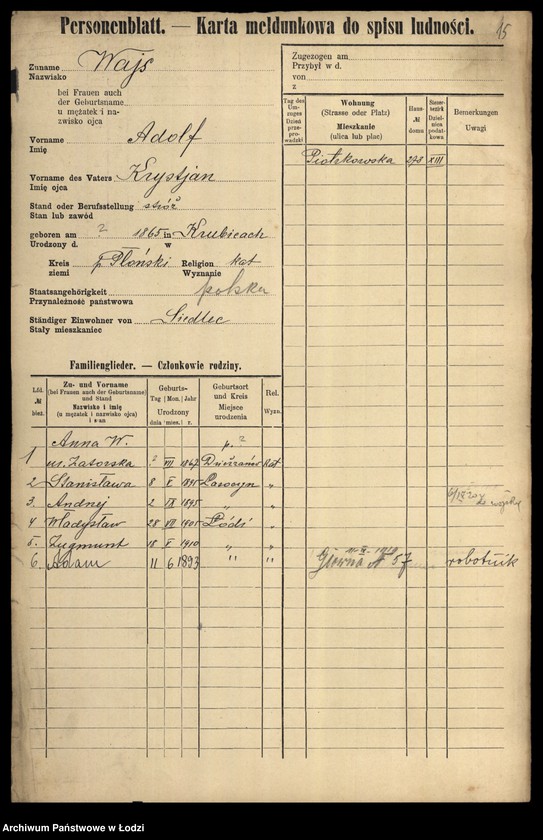 Personenblatt. — Karta meldunkowa do spisu ludności.
15
Zuname
Nazwisko
Wajs
bei Frauen auch
der Geburtsname
u mężatek i na-
zwisko ojca
Vorname
Imię
Adolf
Vorname des Vaters
Imię ojca
Krystjan
Stand oder Berufsstellung
Stan lub zawód
stróż
geboren am ? 1865 in Krubicach
Urodzony d. w
Kreis p. Płoński Religion kat
ziemi Wyznanie
Staatsangehörigkeit
Przynależność państwowa
polska
Ständiger Einwohner von
Stały mieszkaniec
Siedlec
Zugezogen am
Przybył w d.
von
z
Tag des Um-zuges Dzień prze-pro-wadzki
Wohnung
(Strasse oder Platz)
Mieszkanie
(ulica lub plac)
Haus-
№
domu
Steuer-bezirk
Dziel-nica podat-kowa
Bemerkungen
Uwagi
Piotrkowska 278 XIII
Familienglieder. — Członkowie rodziny.
Lfd.
№
bież.
Zu- und Vorname
(bei Frauen auch der Geburtsname)
und Stand
Nazwisko i imię
(u mężatek i nazwisko ojca)
i stan
Geburts-
Tag Mon. Jahr
Urodzony
dnia mies. r.
Geburtsort
und Kreis
Miejsce
urodzenia
Rel.
Wyzn.
Anna W. p. ?
1 ur. Zatorska ? VII 1867 kat
2 Stanisława 8 X 1895 "
3. Andrzej 2 IX 1898 " "
4 Władysław 28 VII 1905 Łódź "
5. Zygmunt 18 X 1910 " "
6. Adam 11 6 1893 " " Główna № 57 robotnik
Archiwum Państwowe w Łodzi